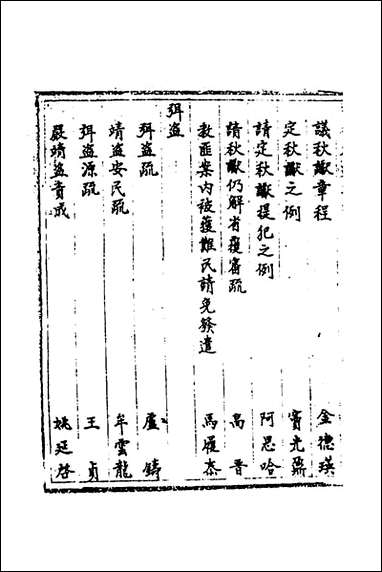 議秋讞章程 金德瑛
定秋讞之例 竇光鼐
請定秋讞提犯之例 阿思哈
請秋讞仍解省覆審疏 高晋
教匪案内被獲難民請免發遣 馬履泰
弭盜
弭盜疏 盧鑄
靖盜安民疏 牟雲龍
弭盜源疏 王貞
嚴靖盜責成 姚延啓